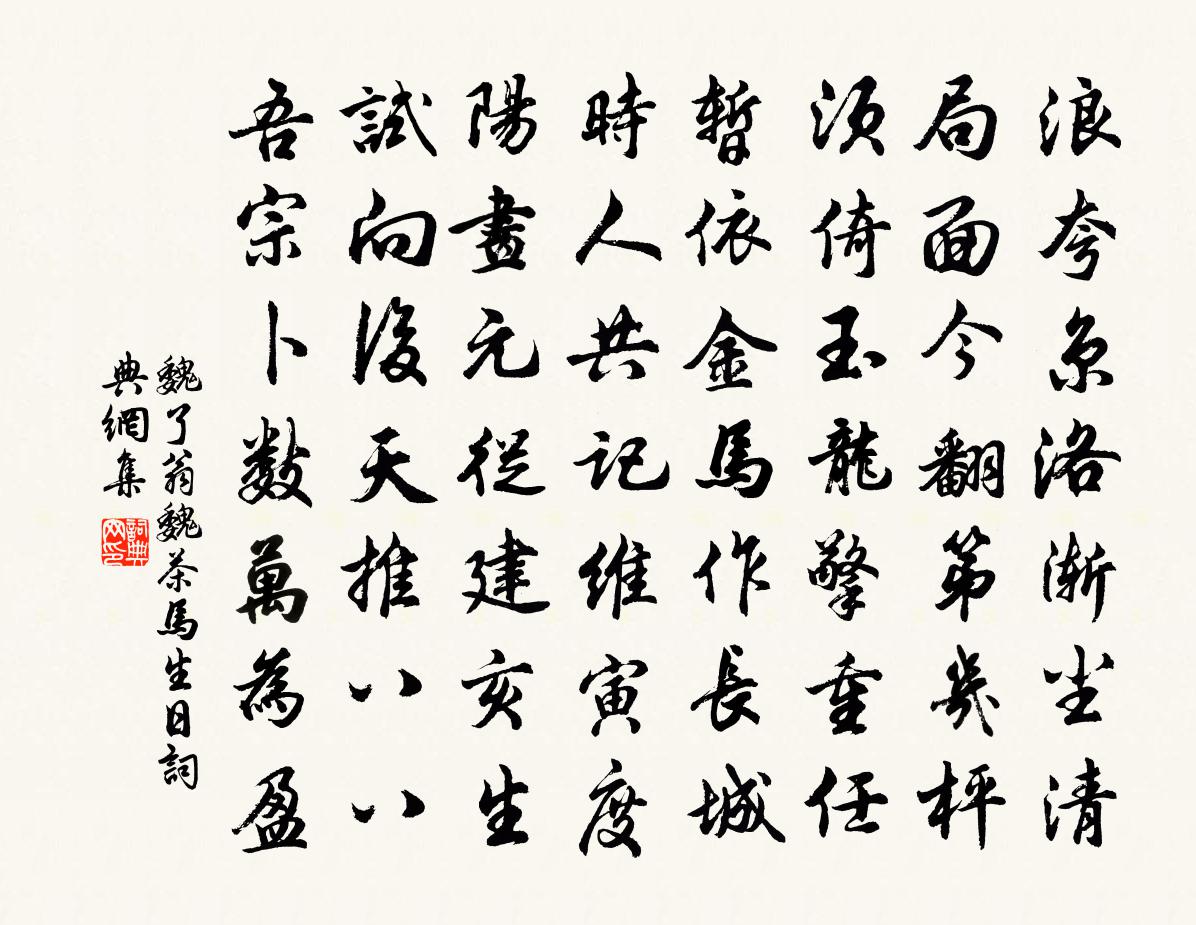 浪夸京洛渐尘清
局面今翻第幾枰
須倚玉龍擎重任
暫依金馬作長城
時人共記維寅度
陽畫元從建亥生
試向後天推八八
吾宗卜數萬為盈
魏了翁魏茶馬生日詞
典網集
詞典网印